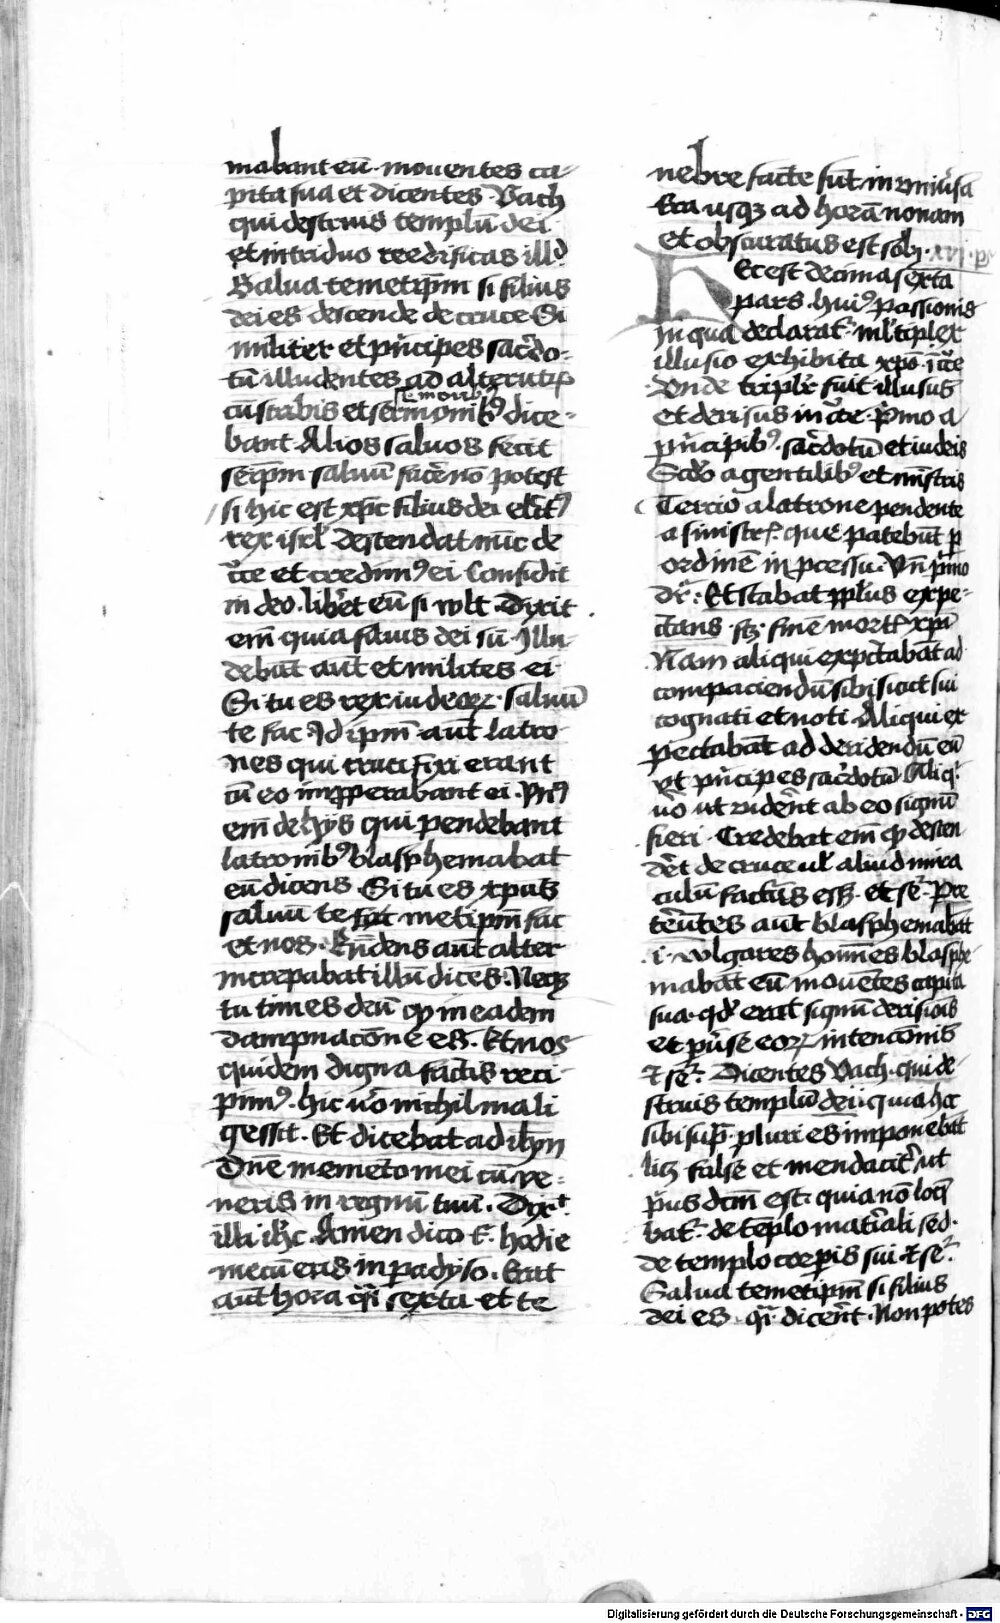 mabant eū · mouentes ca-
pita sua et dicentes · Vach
qui destruis templū dei
et in triduo reedificas illd
Salua temetip̄m si filius
dei es descende de cruce · Si
militer et p̄ncipes sac̄do-
tū illudentes ad alterutrū
cū scribis et sermonibꝰ dice-
bant · Alios saluos fecit
seip̄m saluū facē nō potest
si hic est xp̄c filius dei elc̄tꝰ
rex isrl̄ descendat nūc de
c̄ce et credimꝰ ei Confidit
in deo · lib̄et eū si vlt · Dixit
em̄ quia filius dei sū · Illu-
debāt aūt et milites ei ·
Si tu es rex iudeoꝝ · saluū
te fac · Id ip̄m · aūt latro-
nes qui crucifixi erant
cū eo imꝓperabant ei · Vnꝰ
em̄ de hijs qui pendebant
latronibꝰ blasphemabat
eū dicens · Si tu es xp̄us
saluū te metip̄m fac
et nos · Rn̄dens aūt alter
increpabat illū dicēs · Neqꝫ
tu times deū qꝫ in eadem
dampnac̄one es · Et nos
quidem digna factis reci-
pimꝰ · hic v̄o nichil mali
gessit · Et dicebat ad ih̄m
Dn̄e memēto mei cū ve-
neris in regnū tuū · Dixt
illi ih̄c · Amen dico t · hodie
mecū eris in padyso · Erat
aūt hora q̄si sexta et te
nebre facte sūt in vniūsa
tr̄a usqꝫ ad horā nonam
et obscuratus est sol · xvj · ps
Hec est decima sexta
pars · huiꝰ passionis
in qua declarat᷑ · ml̄tiplex
illusio exhibita xp̄o · ī c̄ce
Vnde triplr̄ fuit illusus
et derisus in c̄ce · p̄mo a
p̄ncipibꝰ · sac̄dotū et iudeis
Sc̄do a gentilibꝰ et mīstris
Tercio a latrone pendente
a sinistr̄ · que patebūt p
ordinē in ꝓcessu · Vn̄ p̄mo
dr̄ · Et stabat pp̄lus expe-
ctans · sꝫ · finē mort xp̄i
Nam aliqui exp̄ctabāt ad
compaciendū sibi sicut sui
cogniti et noti · Aliqui ex
pectabāt ad deridendū eū
vt p̄ncipes sac̄dotū Aliq̄
v̄o ut viderēt ab eo signū
fieri · Credebāt em̄ qꝫ descen
dēt de cruce ul̄ aliud mira
culū factūs eēt · et se᷑ · Pre
tēuntes aūt blasphemabāt
· i · vulgares homīes blasphe
mabāt eū mouētes capita
sua · qd̄ erat signū derisiōis
et p̄ūse eoꝝ intencōnis
et se᷑ · Dicentes Vach · qui de
struis templū dei · quia hoc
sibi sup̄ · pluries imponebāt
licꝫ false et mendacit᷑ · ut
p̄us dcm̄ est · quia nō loq̄
bat᷑ · de tēplo mat̄iali sed ·
de templo corporis sui · et se᷑
Salua temetip̄m si filius
dei es · q̄si dicerēt · Non potes
Digitalisierung gefördert durch die Deutsche Forschungsgemeinschaft - DFG